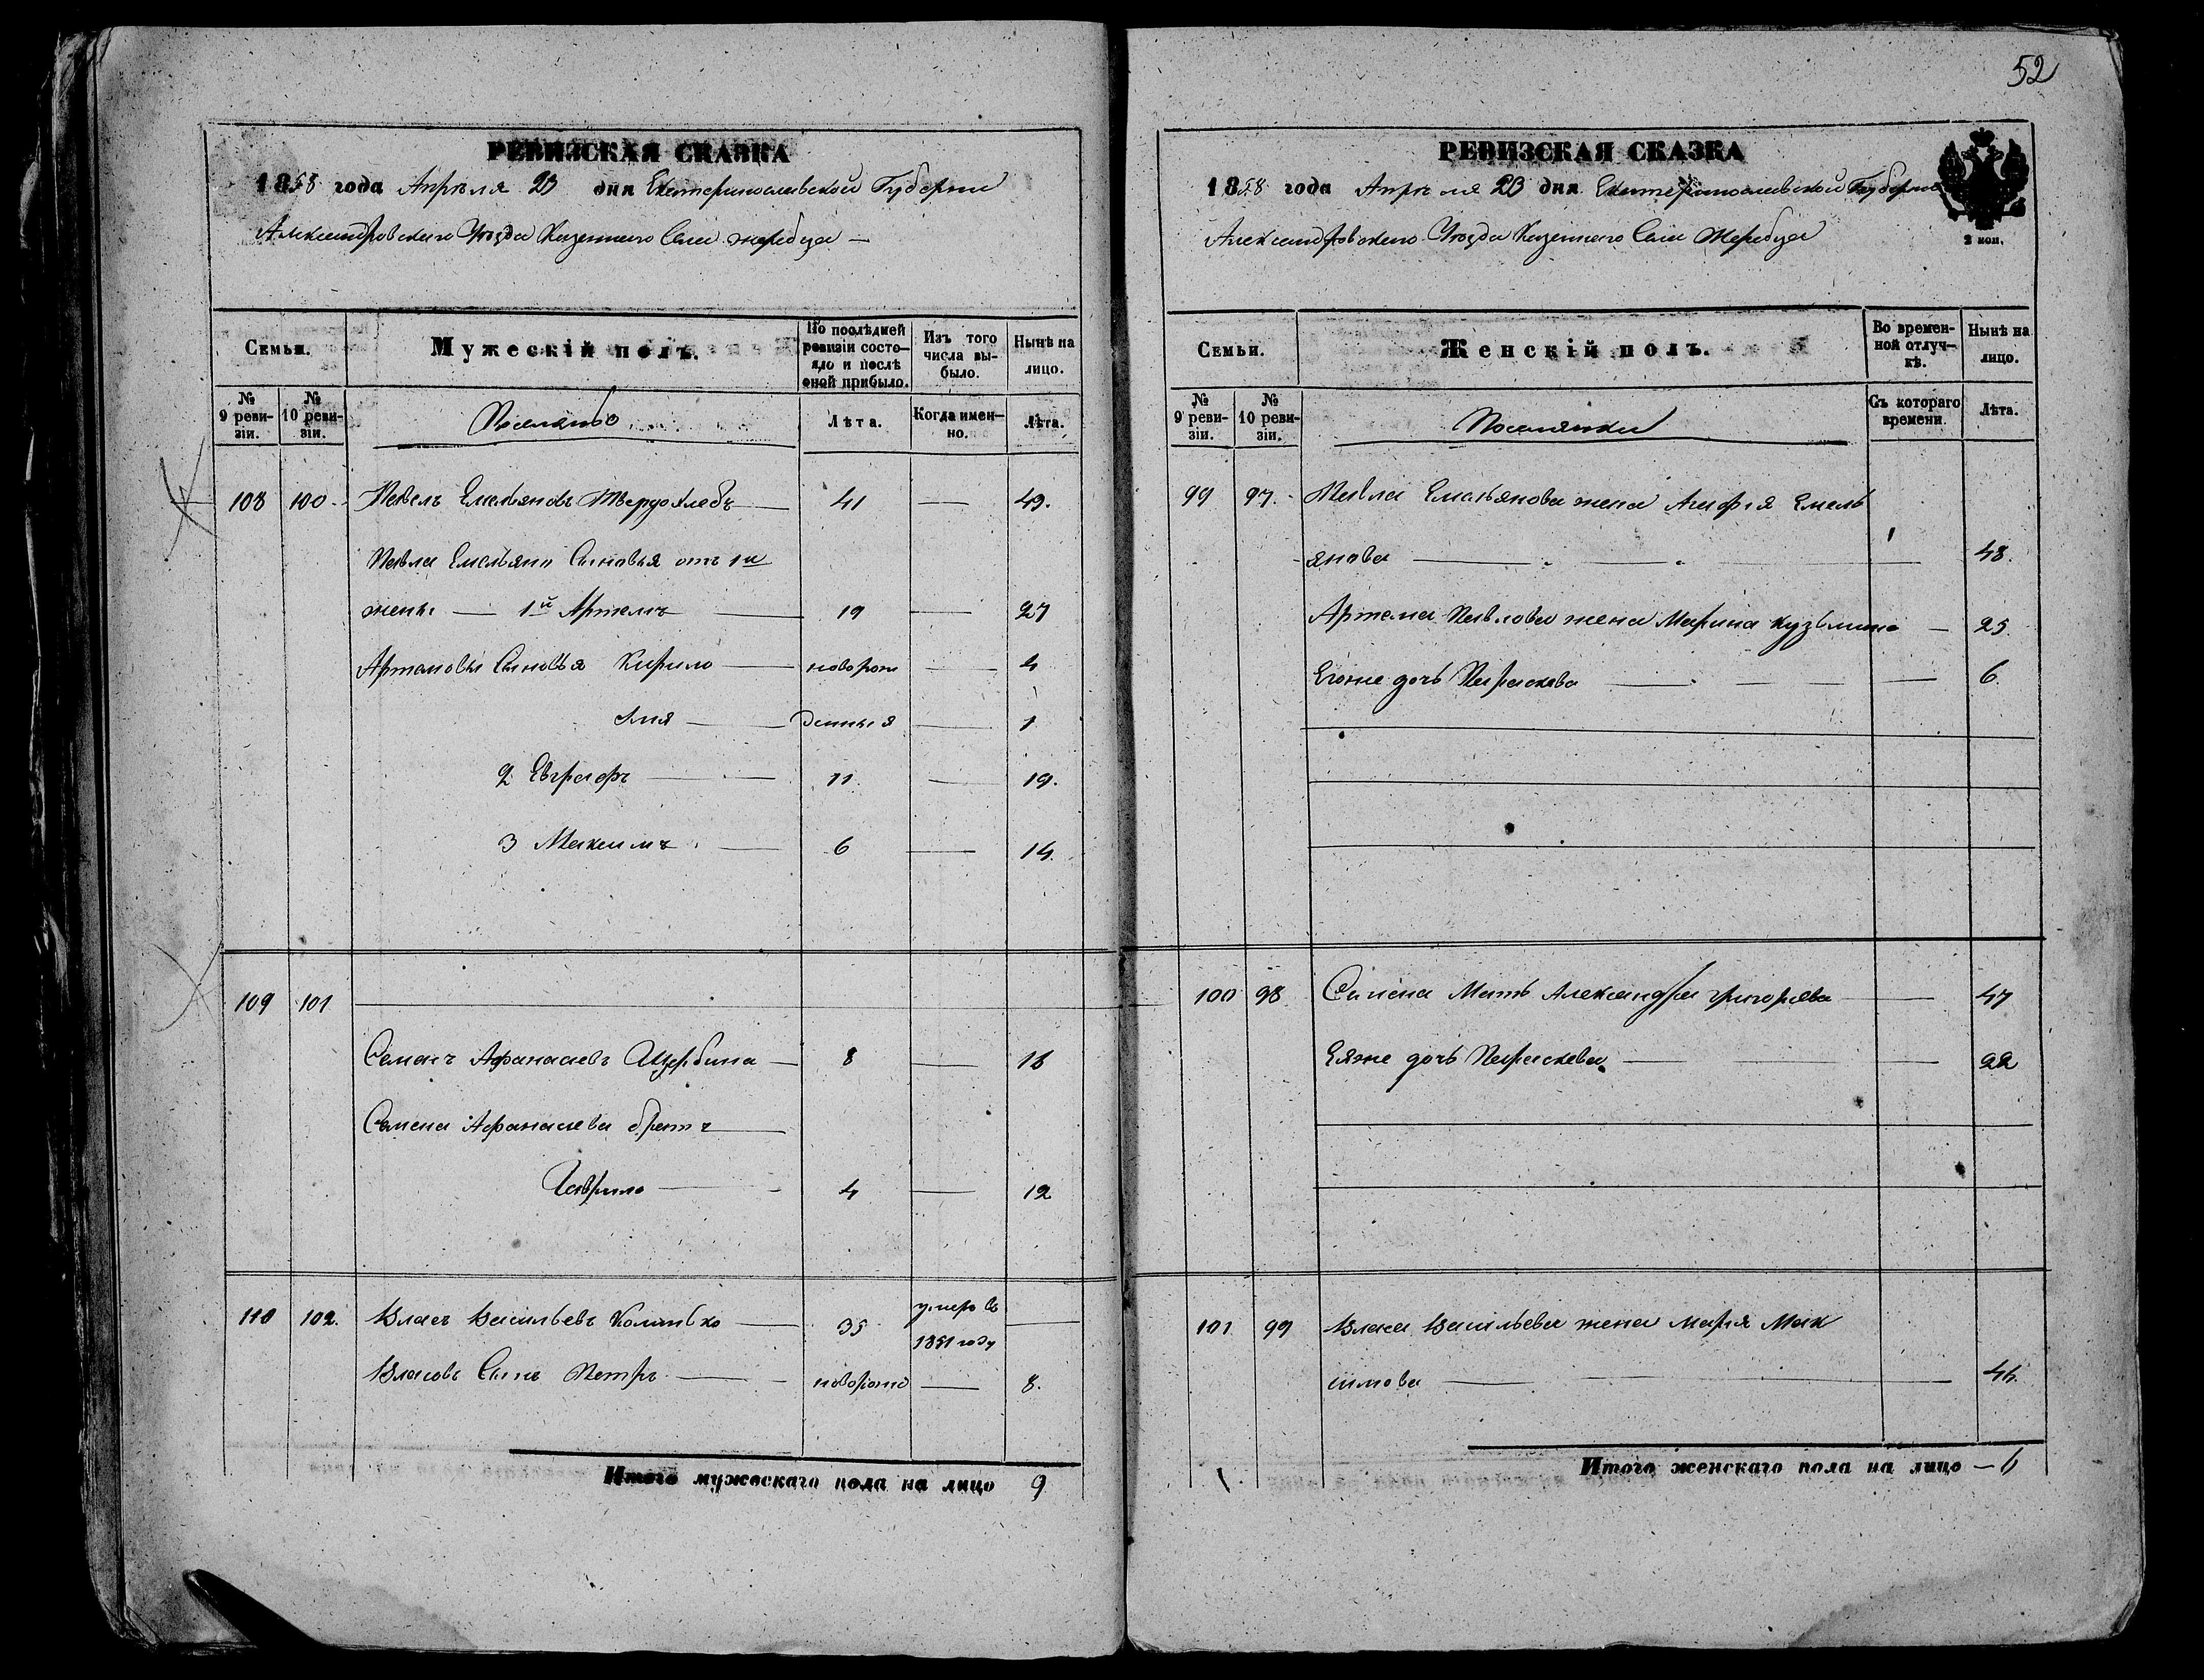 РЕВИЗСКАЯ СКАЗКА
1858 года Апреля 23 дня Екатеринославской Губерніи
Александровскаго Уезда Казеннаго Села жеребца —
Семьи.
Мужескій полъ.
По послѣдней ревизіи состояло и послѣ оной прибыло.
Изъ того числа выбыло.
Нынѣ на лицо.
№ 9 ревизіи.
№ 10 ревизіи.
Поселяно
Лѣта.
Когда именно.
Лѣта.
108 100 Павелъ Емельяновъ Твердохлебъ 41 — 49.
Павла Емельяно Сыновья отъ 1й
жены — 1й Артемъ 19 — 27
Артемовы Сыновья Кирило новорож — 4
Илія денныя — 1
2 Евграфъ 11 — 19.
3 Максимъ 6 — 14.
109 101
Семенъ Афанасиевъ Щербина 8 — 16
Семена Афанасиева братъ
Гаврило 4 — 12
110 102. Власъ Васильевъ Колинько 35 умеръ въ 1851 году —
Власовъ Сынъ Петръ новорожд — 8.
Итого мужескаго пола на лицо 9
52
РЕВИЗСКАЯ СКАЗКА
1858 года Апреля 23 дня Екатеринославской Губерніи
Александровскаго Уезда Казеннаго Села Жеребца
2 коп.
Семьи.
Женскій полъ.
Во временной отлучкѣ.
Нынѣ на лицо.
№ 9 ревизіи.
№ 10 ревизіи.
Поселянки
Съ котораго времени.
Лѣта.
99 97. Павла Емельянова жена Агафія Емель
янова — 48.
Артема Павлова жена Марина Кузьмина — 25.
Егоже дочь Параскева — 6.
100 98 Симена Мать Александра Григорьева — 47
Еяже дочь Параскева — 22
101 99 Власа Васильева жена Марія Мак
симова — 44.
Итого женскаго пола на лицо — 6